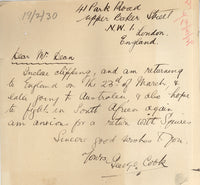 19/2/30
41 Park Road
Upper Baker Street
N.W.1.
London.
England.
Dear Mr Dean
Enclose clipping, and am returning
to England on the 23rd of March, &
later going to Australia, & also hope
to fight in South Africa again
am anxious for a return with Squires
Sincere good wishes to you.
Yours
George Cook